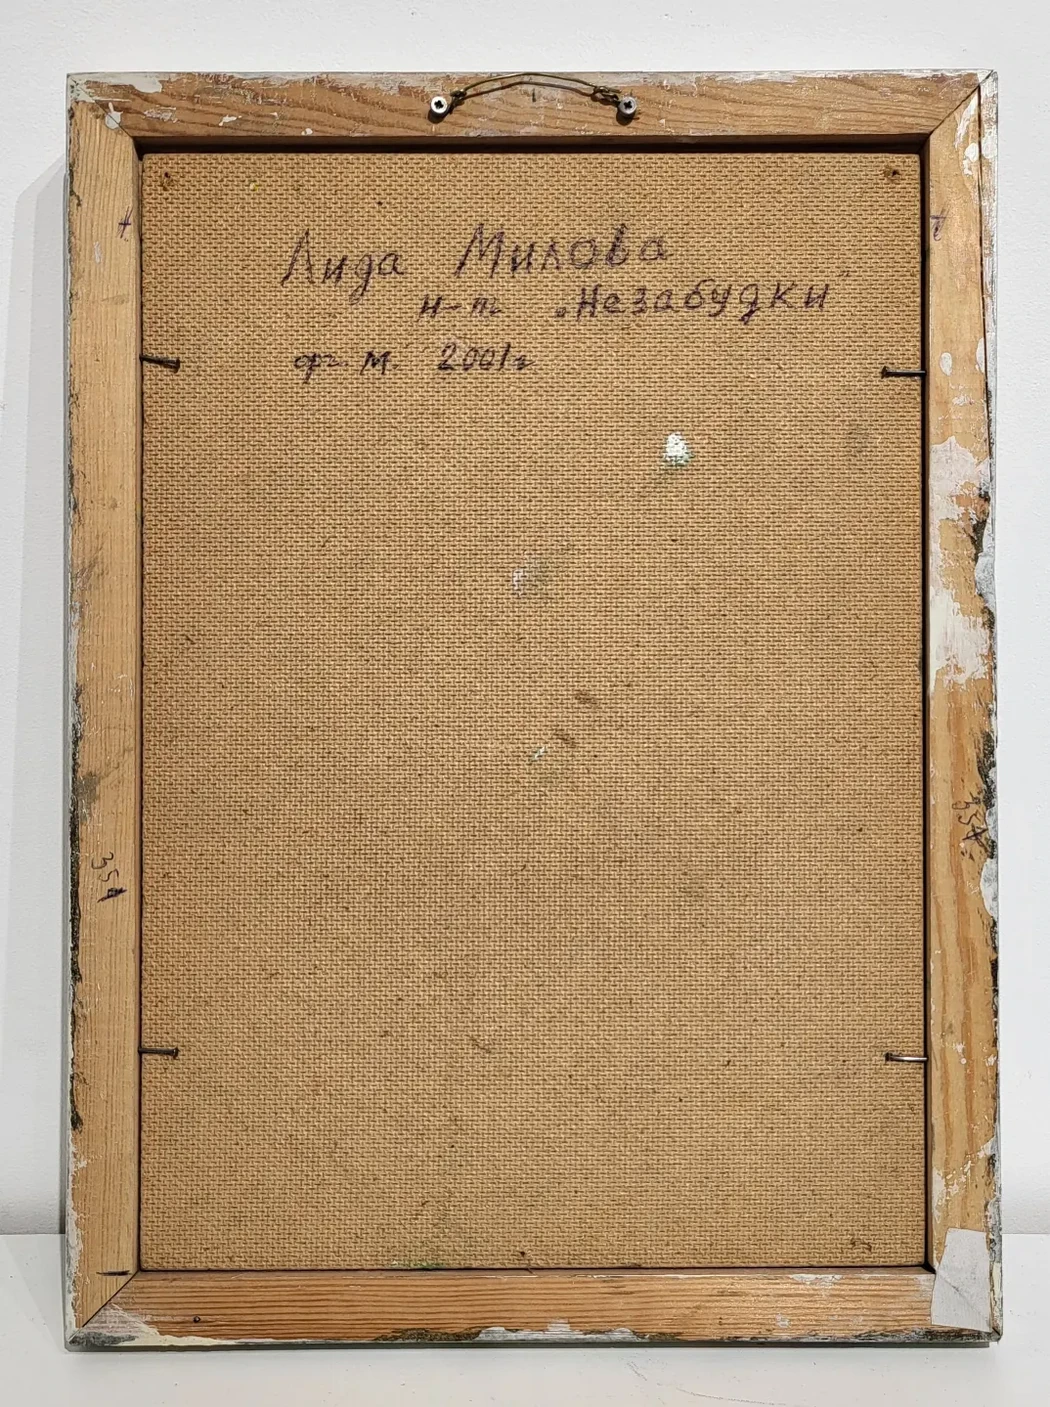 Аида Милова
н-т „Незабудки"
орг. м. 2001г
354
354